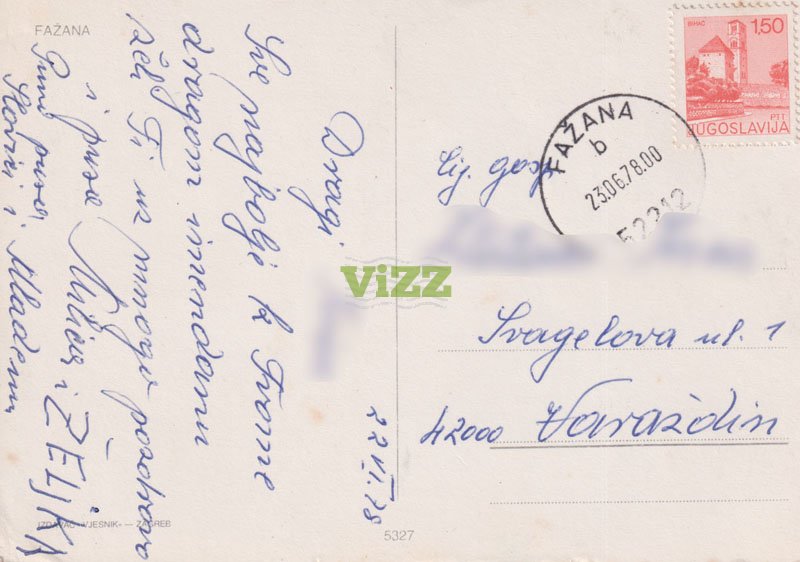 FAŽANA
22 VI. 78
Dragi
Sve najbolje k Tvome
dragom imendanu
želi Ti uz mnogo pozdrava
i pusa
i ŽELJKA
Puno pusa
i Mladenu
IZDAVAČ »VJESNIK« — ZAGREB
5327
BIHAĆ
1,50
PTT
JUGOSLAVIJA
FAŽANA
b
23.06.78.00
52212
Cij. gosp.
Svagelova ul. 1
42000 Varaždin
ViZZ